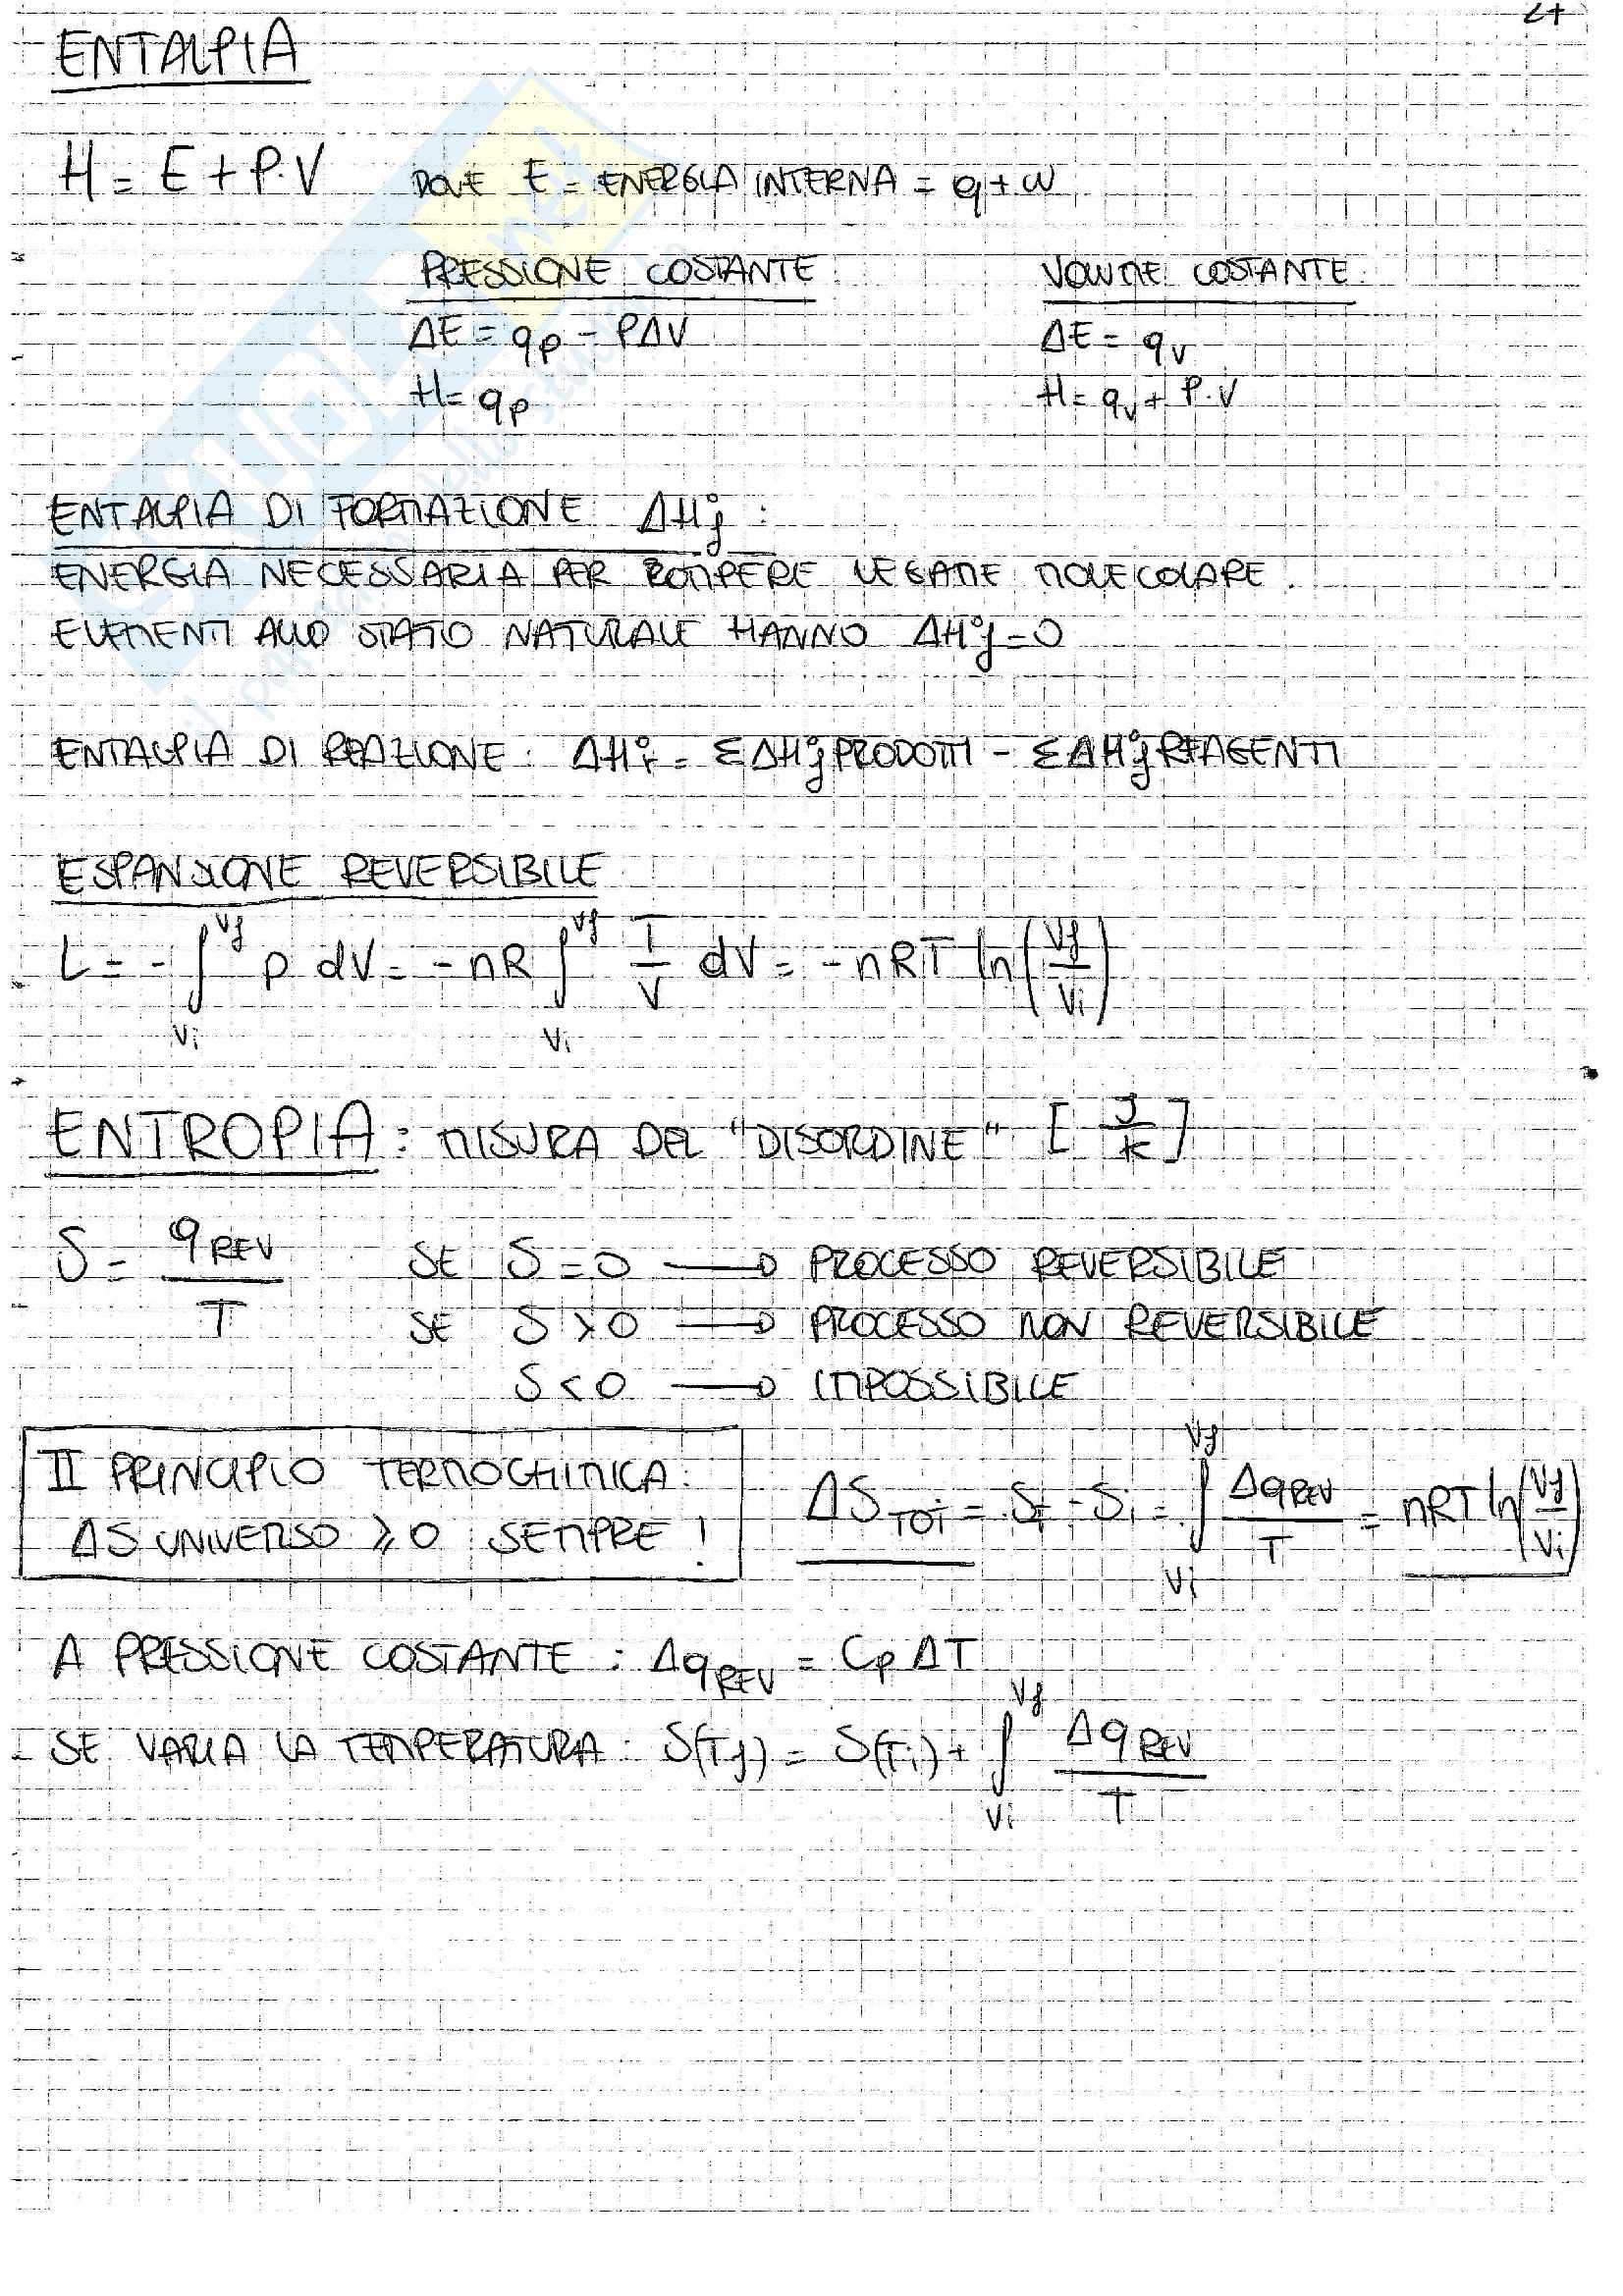 27
ENTALPIA
H = E + P·V DOVE E = ENERGIA INTERNA = q + w
PRESSIONE COSTANTE: VOLUME COSTANTE:
ΔE = qp - PΔV ΔE = qv
H = qp H = qv + P·V
ENTALPIA DI FORMAZIONE ΔH°f :
ENERGIA NECESSARIA PER ROMPERE LEGAME MOLECOLARE.
ELEMENTI ALLO STATO NATURALE HANNO ΔH°f = 0
ENTALPIA DI REAZIONE: ΔH°r = ΣΔH°f PRODOTTI - ΣΔH°f REAGENTI
ESPANSIONE REVERSIBILE
L = - ∫Vi Vf p dV = - nR ∫Vi Vf T/V dV = - nRT ln(Vf/Vi)
ENTROPIA: MISURA DEL "DISORDINE" [J/K]
S = qREV/T SE S = 0 → PROCESSO REVERSIBILE
SE S > 0 → PROCESSO NON REVERSIBILE
S < 0 → IMPOSSIBILE
II PRINCIPIO TERMOCHIMICA:
ΔS UNIVERSO ⩾ 0 SEMPRE!
ΔSTOT = Sf - Si = ∫Vi Vf ΔqREV/T = nRT ln(Vf/Vi)
A PRESSIONE COSTANTE: ΔqREV = Cp ΔT
SE VARIA LA TEMPERATURA: S(Tf) = S(Ti) + ∫Vi Vf ΔqREV/T